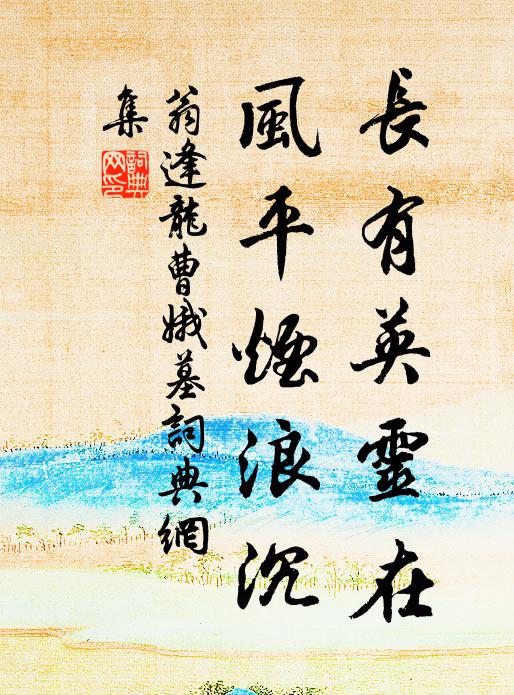 長有英靈在
風平煙浪沉
翁逢龍曹娥墓詞典網
集
詞典
网印